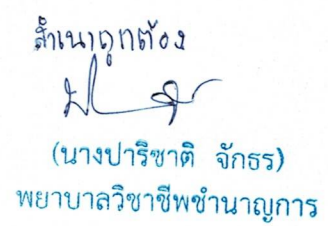 สำเนาถูกต้อง
(นางปาริชาติ จักธร)
พยาบาลวิชาชีพชำนาญการ